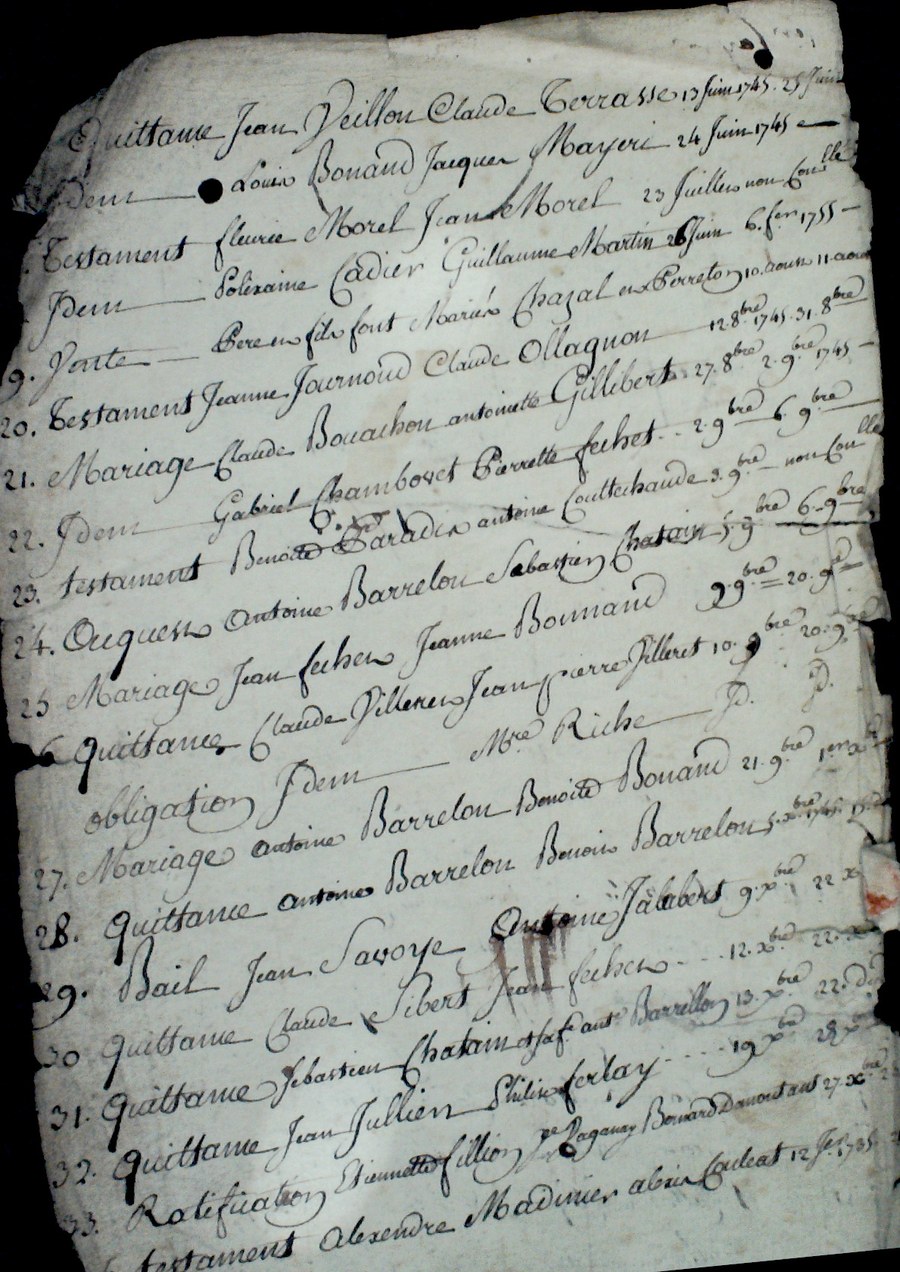 Quittame Jean Veillon Claude Terrasse 13 Juin 1745. 25 Juin
Idem Louis Bonand Jacques Mayeri 24 Juin 1745
Testament fleurie Morel Jean Morel 23 Juillen non Conlle
Idem Polixaine Cadier Guillaume Martin 26 Juin 6. fer 1755
9. Vente Pere en fils font Mariés Chazal en Perreton 10. aoun 11. aoun
20. Testament Jeanne Journoud Claude Ollagnon 12. 8bre 1745. 31. 8bre
21. Mariage Claude Bouachon antoinette Gillibert. 27. 8bre 2. 9bre 1745
22. Idem Gabriel Chambovet Pierrette fechet. 2. 9bre 6. 9bre
23. testament Benoite Paradis antoine Couttechaude 3. 9bre non Conlle
24. Antoine Barrelon Sebastien Chatain 5. 9bre 6. 9bre
25 Mariage Jean fechen Jeanne Bonnand 9. 9bre 20. 9bre
6 Quittance Claude Villeren Jean pierre Villeret 10. 9bre 20. 9bre
obligation Idem Mre Riche Id. Id.
27. Mariage antoine Barrelon Benoite Bonand 21. 9bre 1er
28. Quittance antoine Barrelon Benoin Barrelon 5. xbre 1745.
29. Bail Jean Savoye Antoine Jalabert 9. xbre 22 x
30 Quittame Claude Sibert Jean fechen 12. xbre 22. x
31. Quittame Sebastien Chatain et sa fe ant Barrellon 13. xbre 22. Du
32. Quittame Jean Jullien Philix ferlay 19 xbre 28 xbre
33. Ratification Etiennette fillion Pe Ragenay Bernard Damontant 27. xbre
testament alexendre Madinier alexis Couleat 12 Jer 1735